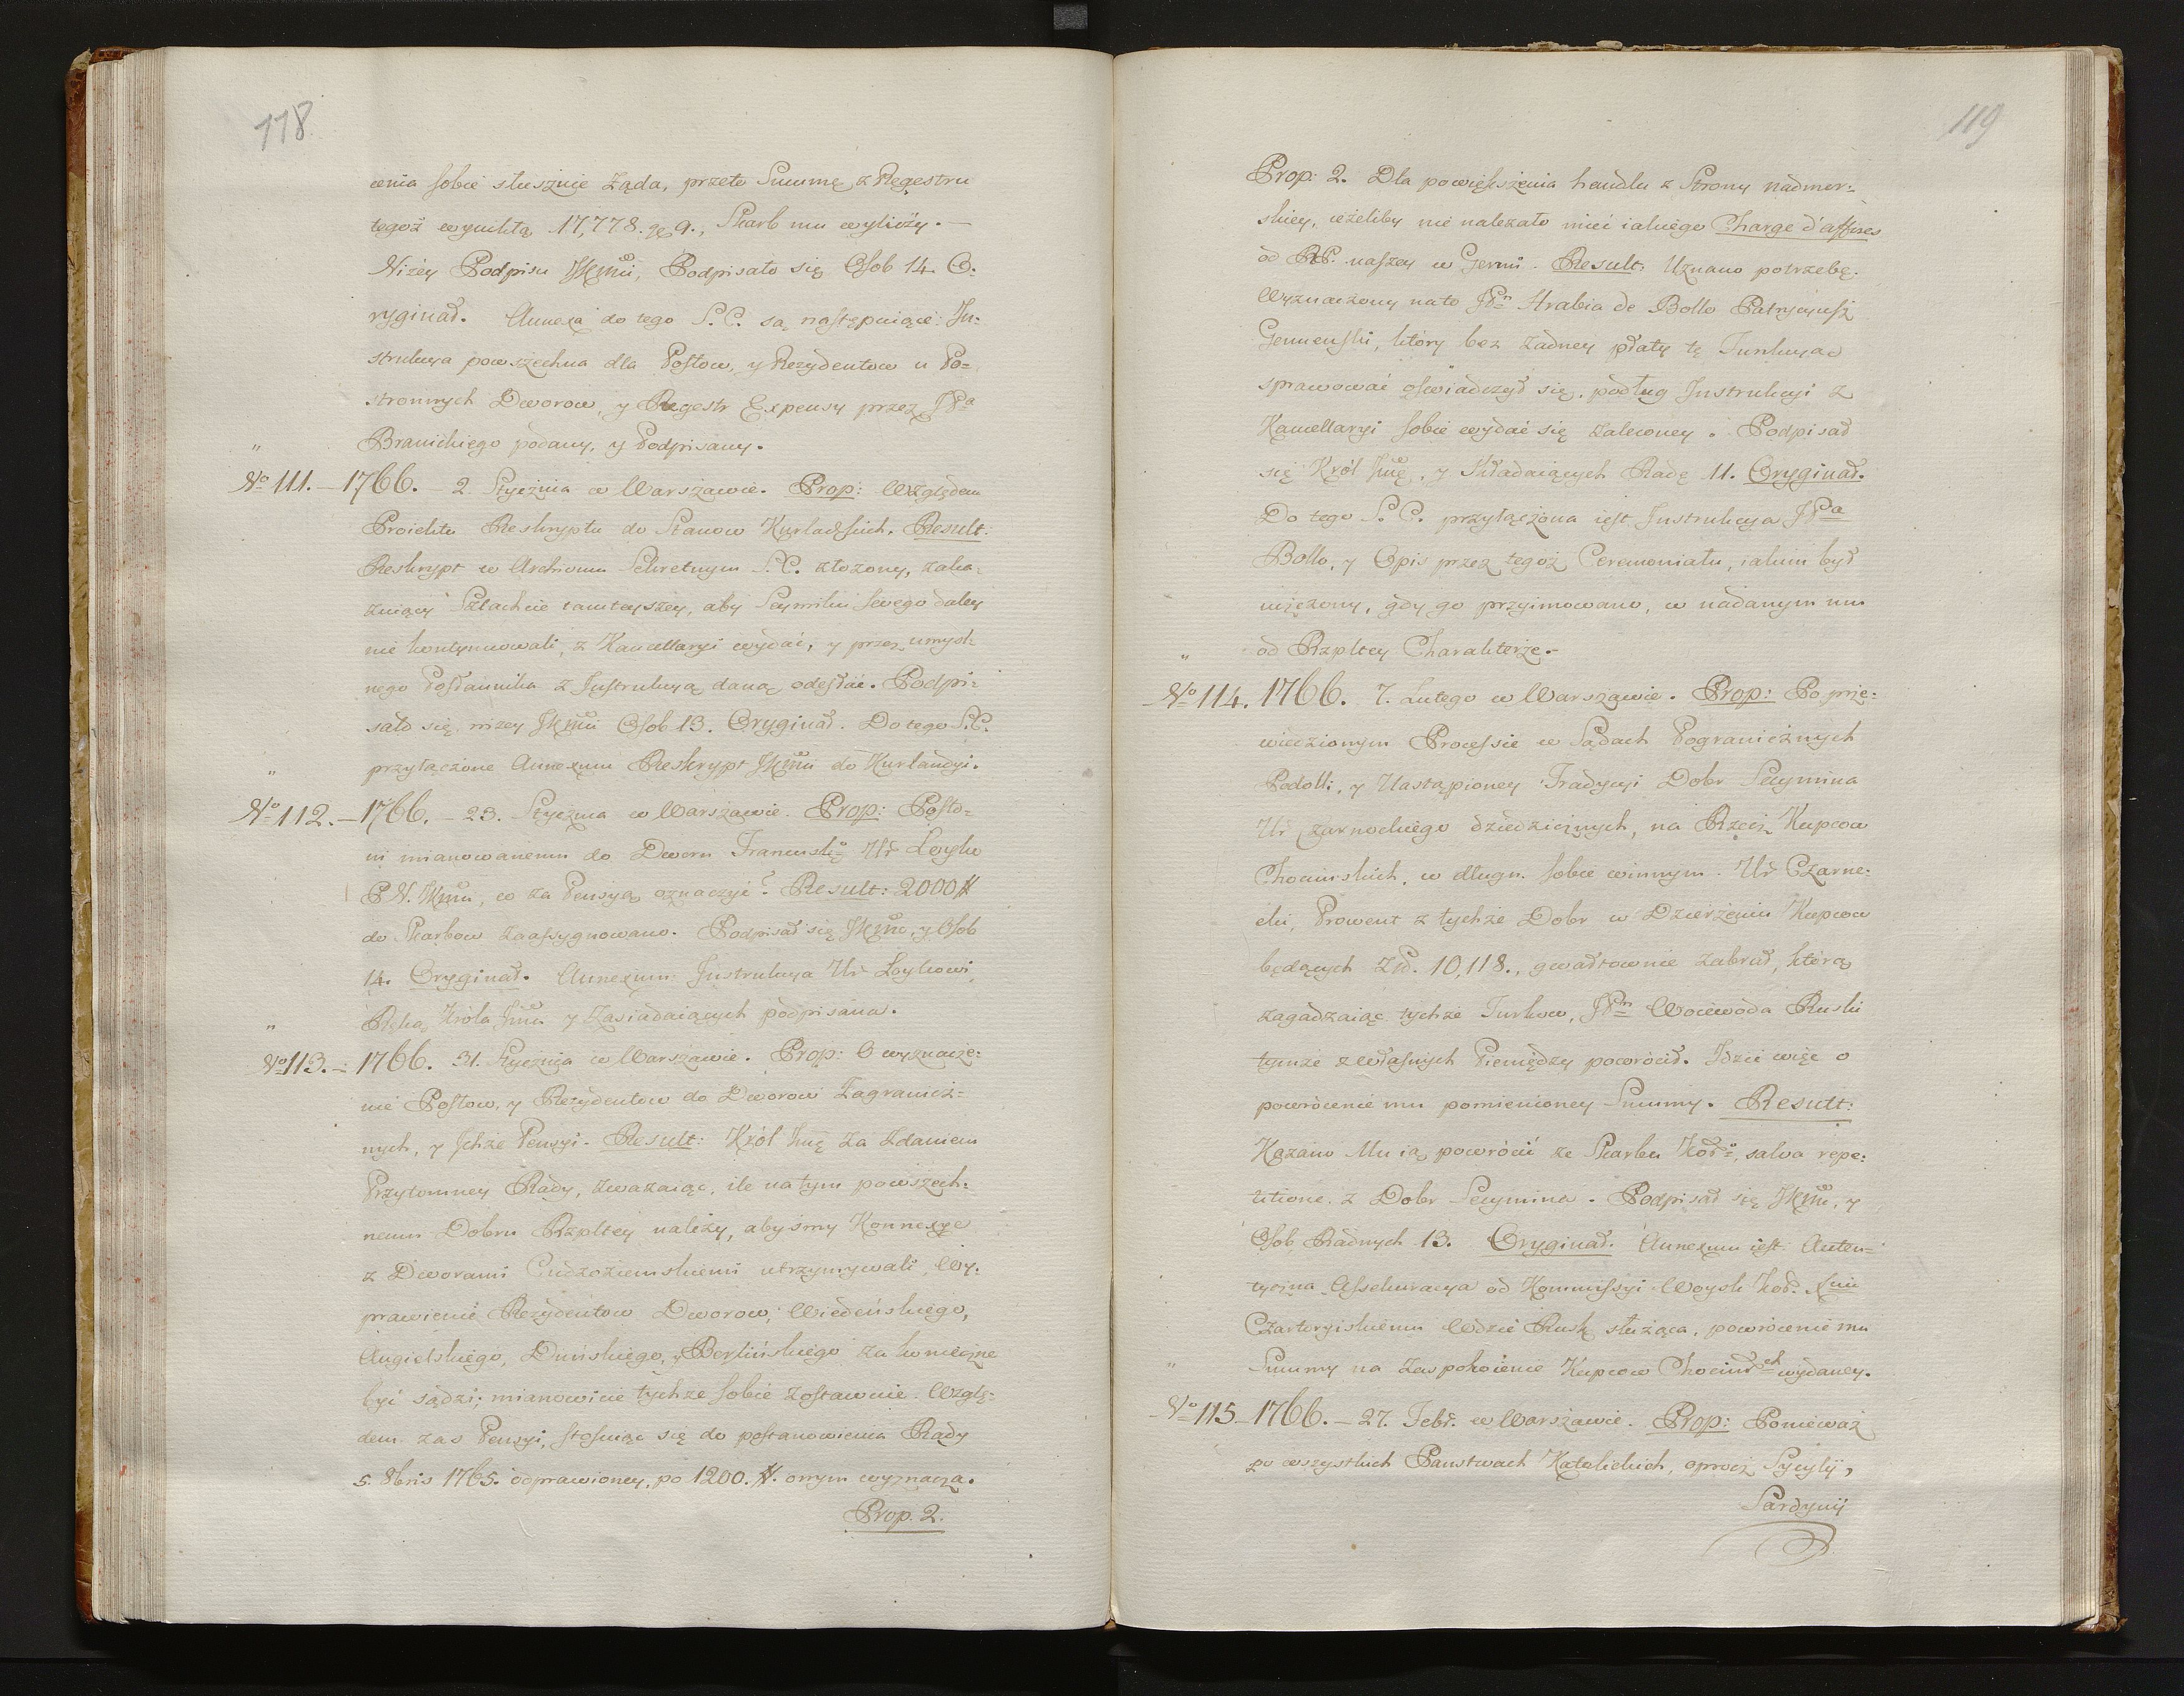 118
cenia sobie słusznie żąda, przeto Summę z Regestru
tegoż wynikłą 17,778. gr 9., Skarb mu wyliczy. —
Niżey Podpisu JKMci, Podpisało się Osob 14. O-
ryginał. Annexa do tego S.C. są następuiące: In-
strukcya powszechna dla Posłow, y Rezydentow u Po-
stronnych Dworow, y Regestr Expensy przez JPa
Branickiego podany, y Podpisany.
No 111. — 1766. — 2 Stycznia w Warszawie. Prop: Względem
Proiektu Reskryptu do Stanow Kurlandskich. Result:
Reskrypt w Archivum Sekretnym S.C. złożony, zaka-
zuiący Szlachcie tamteyszey, aby Seymiku swego daley
nie kontynuowali, z Kancellaryi wydać, y przez umysl-
nego Posłannika z Instrukcyą daną odesłać. Podpi-
sało się niżey JKMci Osob 13. Oryginał. Do tego S.C.
przyłączone Annexum Reskrypt JKMci do Kurlandyi.
No 112. — 1766. — 23. Stycznia w Warszawie. Prop: Posło-
wi mianowanemu do Dworu Francusko Ur Loyko
P.N. JKMci, co za Pensyą oznaczyć? Result: 2000 #
do Skarbow zaassygnowano. Podpisał się JKMć, y Osob
14. Oryginał. Annexum Instrukcya Ur Loykowi,
Ręką Króla Jmci y Zasiadaiących podpisana.
No 113. — 1766. 31. Stycznia w Warszawie. Prop: O wyznacze-
nie Posłow, y Rezydentow do Dworow Zagranicz-
nych, y Ichże Pensyi. Result: Król Jmć za Zdaniem
Przytomney Rady, zważaiąc, ile na tym powszech-
nemu Dobru Rzpltey należy, abyśmy Konnexye
z Dworami Cudzoziemskiemi utrzymywali, Wy-
prawienie Rezydentow Dworow; Wiedeńskiego,
Angielskiego, Duńskiego, y Berlińskiego za konieczne
być sądzi; mianowicie tychże sobie zostawuie. Wzglę-
dem zaś Pensyi, stosuiąc się do postanowienia Rady
5. 8bris 1765. odprawioney, po 1200. #. onym wyznacza.
Prop. 2.
119
Prop: 2. Dla powiększenia handlu z Strony nadmor-
skiey, ieżeliby nie należało mieć iakiego Charge d'affires
od RP. naszey w Genui. Result: Uznano potrzebę.
Wyznaczony na to JPn Hrabia de Bollo Patrycyusz
Genuenski, ktory bez żadney płaty tę Funkcyą
sprawować oświadczył się, podług Instrukcyi z
Kancellaryi sobie wydać się zaleconey. Podpisał
się Król Jmć, y Składaiących Radę 11. Oryginał.
Do tego S.C. przyłączona iest Instrukcya JPa
Bollo, y Opis przez tegoż Ceremoniału, iakim był
uczczony, gdy go przyimowano, w nadanym mu
od Rzpltey Charakterze. —
No 114. 1766. 7. Lutego w Warszawie. Prop: Po prze-
wiedzionym Processie w Sądach Pogranicznych
Podoll:, y Nastąpioney Tradycyi Dobr Secymina
Ur Czarneckiego dziedzicznych, na Rzecz Kupcow
Chocimskich, w długu sobie winnym. Ur Czarne-
cki, Prowent z tychże Dobr w Dzierżeniu Kupcow
będących Zło. 10,118., gwałtownie zabrał, którą
zagadzaiąc tychże Turkow, JPn Woiewoda Ruski
tymże z własnych Pieniędzy powrócił. Idzie więc o
powrócenie mu pomienioney Summy. Result:
Kazano Mu ią powrócić ze Skarbu Kor:, salva repe-
titione z Dobr Secymina. Podpisał się JKMć, y
Osob Radnych 13. Oryginał. Annexum iest Auten-
tyczna Assekuracya od Kommissyi Woysk Kor. Xciu
Czartoryiskiemu Wdzie Rusk służąca, powrócenie mu
Summy na zaspokoienie Kupcow Chocimsch wydaney.
No 115 — 1766. — 27. Febr. w Warszawie. Prop: Ponieważ
po wszystkich Panstwach Katolickich, oprocz Sycylij,
Sardynij